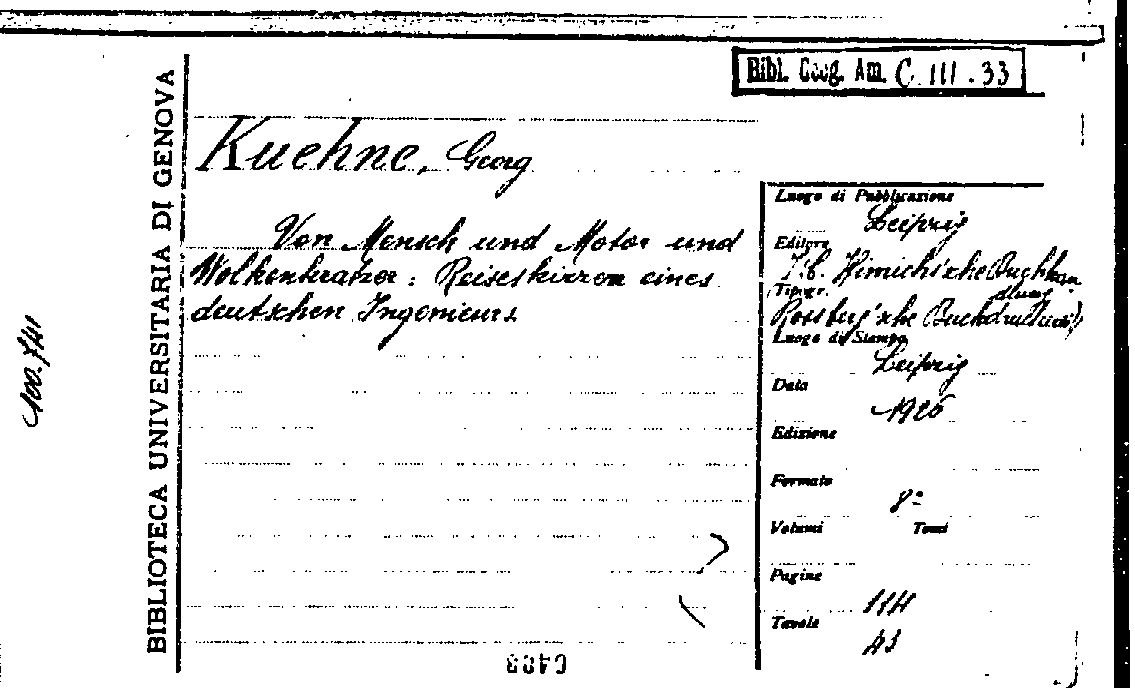 Bibl. Geog. Am. C. III. 33
BIBLIOTECA UNIVERSITARIA DI GENOVA
100.741
Kuehne, Georg
Von Mensch und Motor und
Wolkenkratzer: Reiseskizzen eines
deutschen Ingenieurs
Luogo di Pubblicazione
Leipzig
Editore
J.C. Hinrichs'sche Buchhan
dlung
Tipogr.
Rossberg'sche Buchdruckerei
Luogo di Stampa
Leipzig
Data
1926
Edizione
Formato
8º
Volumi Tomi
Pagine
114
Tavole